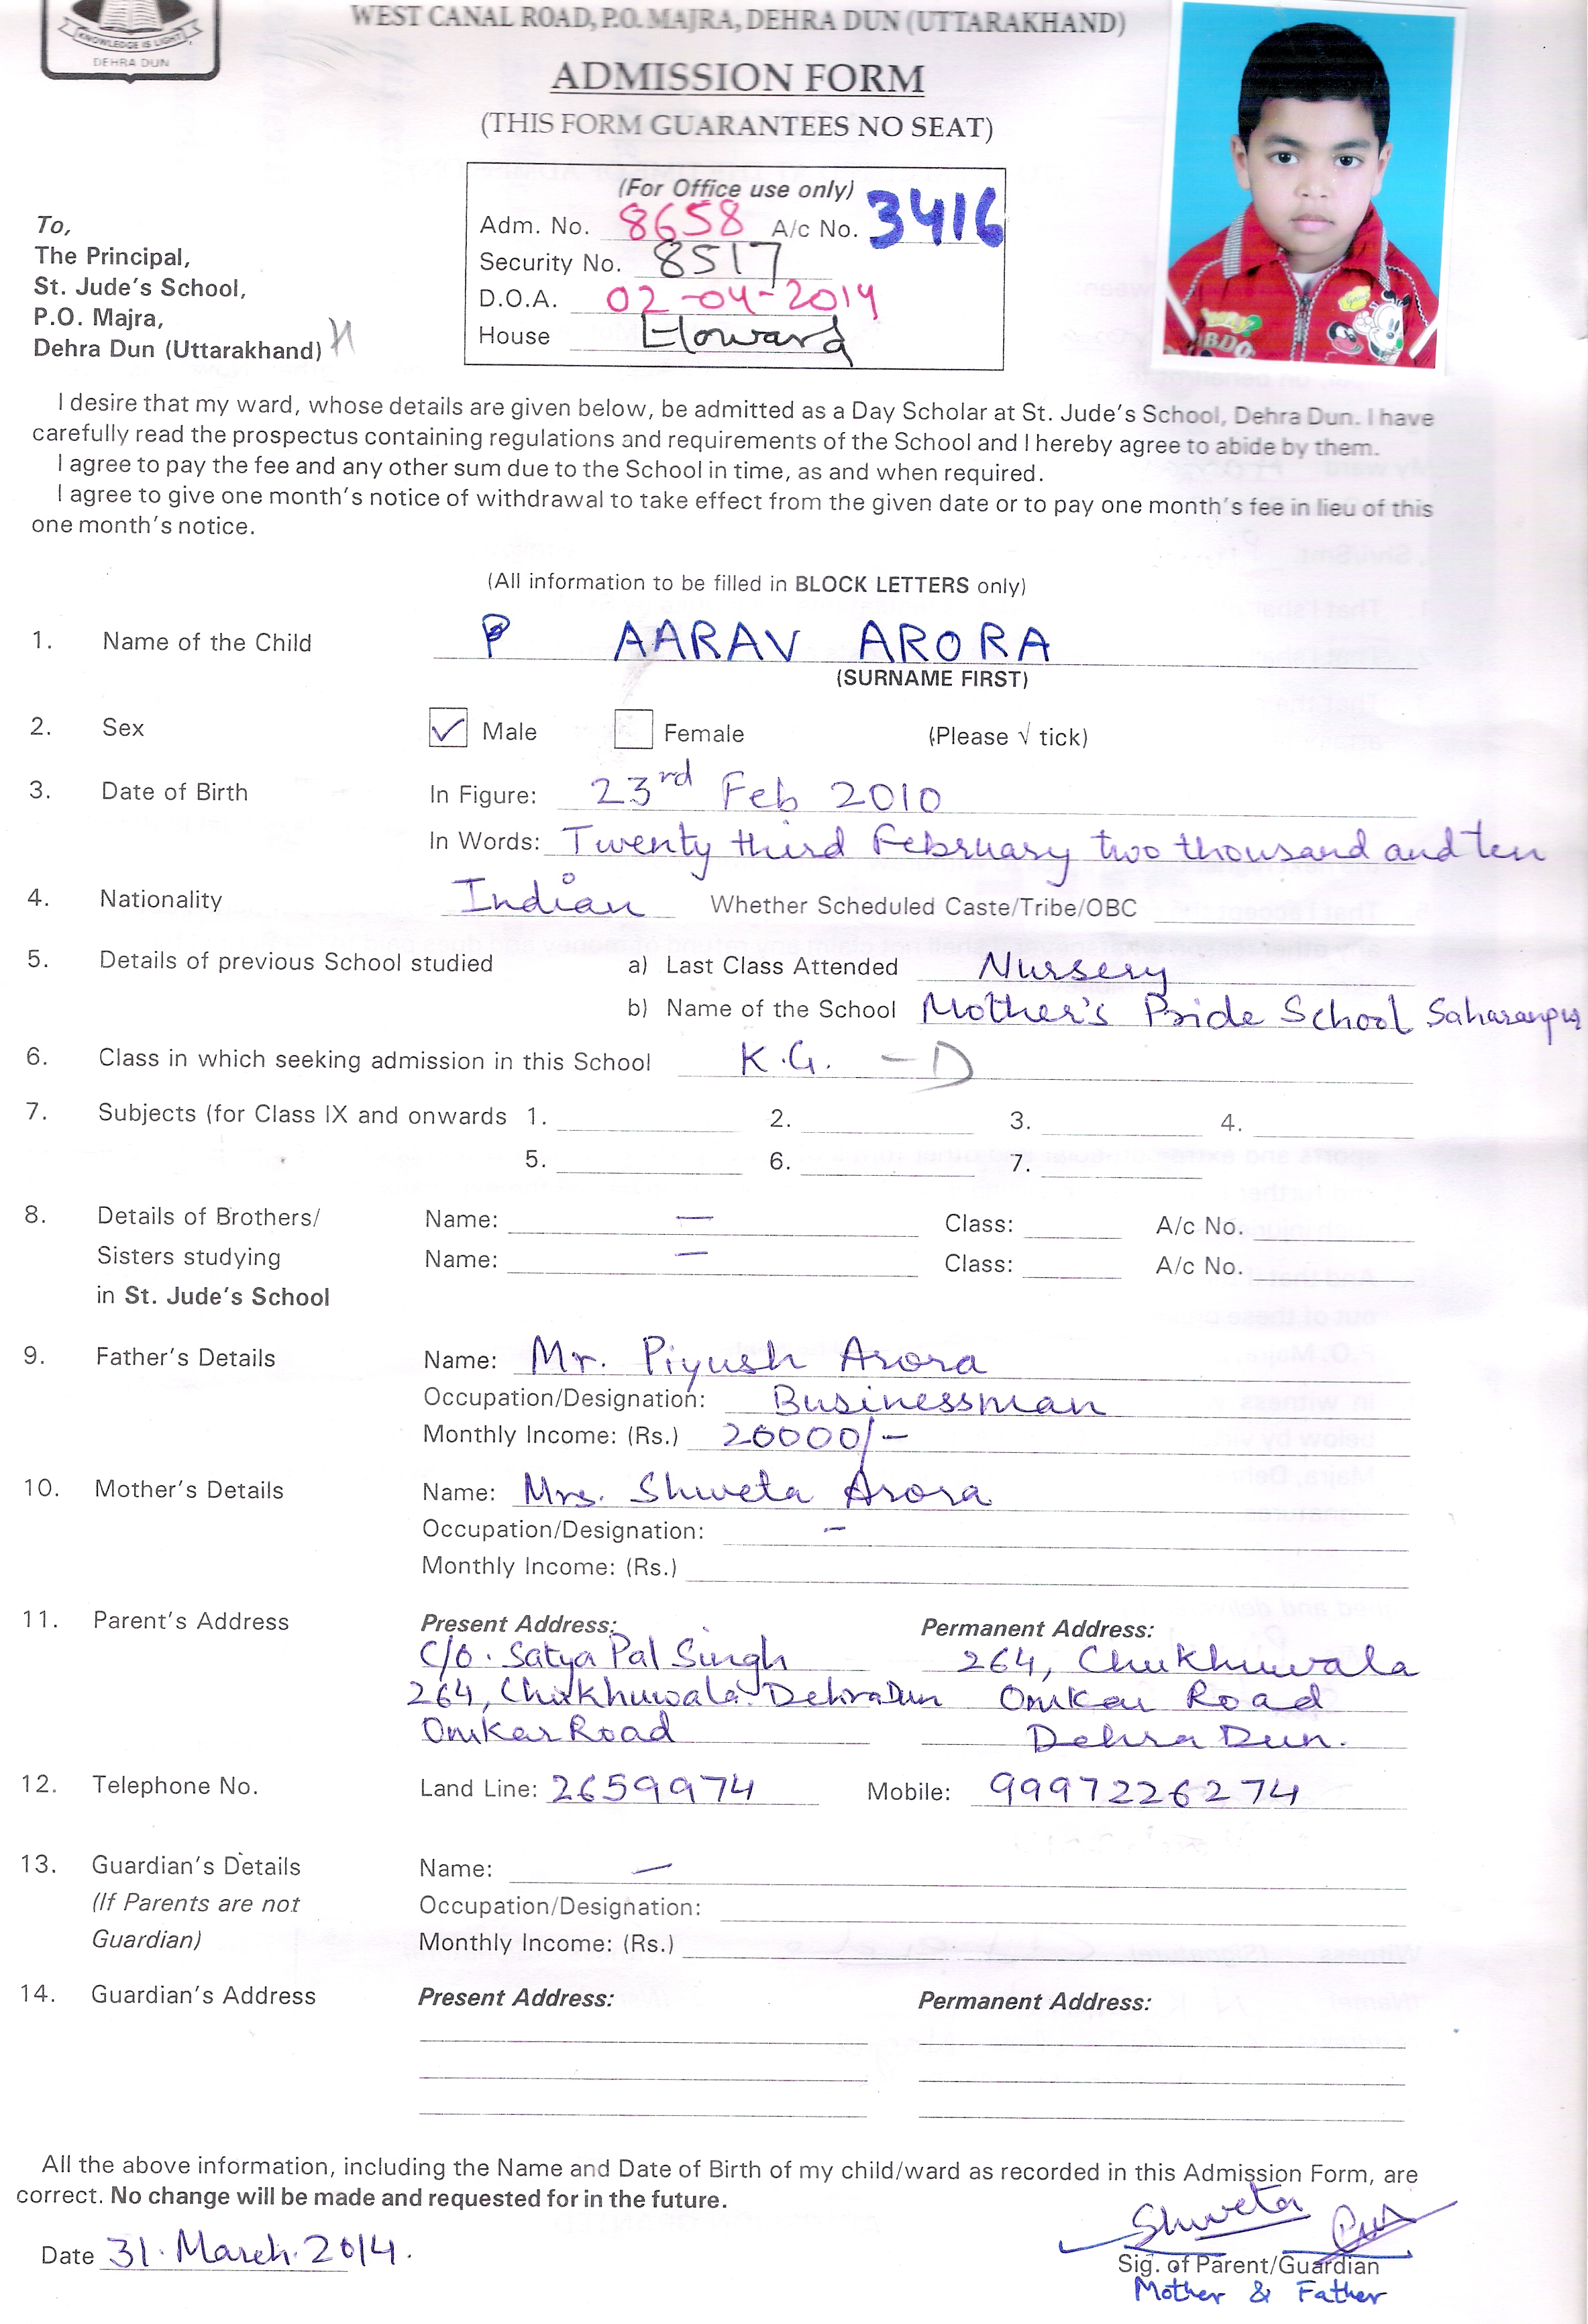 KNOWLEDGE IS LIGHT
DEHRA DUN
WEST CANAL ROAD, P.O. MAJRA, DEHRA DUN (UTTARAKHAND)
ADMISSION FORM
(THIS FORM GUARANTEES NO SEAT)
(For Office use only)
Adm. No. 8658 A/c No. 3416
Security No. 8517
D.O.A. 02-04-2014
House Howard
To,
The Principal,
St. Jude's School,
P.O. Majra,
Dehra Dun (Uttarakhand) H
I desire that my ward, whose details are given below, be admitted as a Day Scholar at St. Jude's School, Dehra Dun. I have
carefully read the prospectus containing regulations and requirements of the School and I hereby agree to abide by them.
I agree to pay the fee and any other sum due to the School in time, as and when required.
I agree to give one month's notice of withdrawal to take effect from the given date or to pay one month's fee in lieu of this
one month's notice.
(All information to be filled in BLOCK LETTERS only)
1. Name of the Child AARAV ARORA
(SURNAME FIRST)
2. Sex ✓ Male Female (Please √ tick)
3. Date of Birth In Figure: 23rd Feb 2010
In Words: Twenty third February two thousand and ten
4. Nationality Indian Whether Scheduled Caste/Tribe/OBC
5. Details of previous School studied a) Last Class Attended Nursery
b) Name of the School Mother's Pride School Saharanpur
6. Class in which seeking admission in this School K.G. - D
7. Subjects (for Class IX and onwards 1. 2. 3. 4.
5. 6. 7.
8. Details of Brothers/ Name: — Class: A/c No.
Sisters studying Name: — Class: A/c No.
in St. Jude's School
9. Father's Details Name: Mr. Piyush Arora
Occupation/Designation: Businessman
Monthly Income: (Rs.) 20000/-
10. Mother's Details Name: Mrs. Shweta Arora
Occupation/Designation: -
Monthly Income: (Rs.)
11. Parent's Address Present Address: Permanent Address:
C/o. Satya Pal Singh 264, Chukhuwala
264, Chukhuwala DehraDun Omkar Road
Omkar Road Dehra Dun.
12. Telephone No. Land Line: 2659974 Mobile: 9997226274
13. Guardian's Details Name: —
(If Parents are not Occupation/Designation:
Guardian) Monthly Income: (Rs.)
14. Guardian's Address Present Address: Permanent Address:
All the above information, including the Name and Date of Birth of my child/ward as recorded in this Admission Form, are
correct. No change will be made and requested for in the future.
Shweta
Date 31. March. 2014.
Sig. of Parent/Guardian
Mother & Father